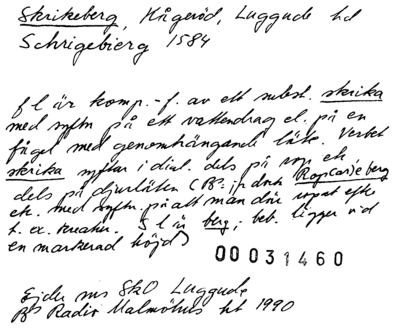 Skrikeberg, Kågeröd, Luggude hd
Schrigebierg 1584
f l är komp.-f. av ett subst. skrika
med syftn på ett vattendrag el. på en
fågel med genomträngande läte. Verbet
skrika syftar i dial. dels på
dels på djurläten ( jfr dock Rop(ar)eberg
etc. med syftn. på att man där ropat efte
t. ex. kreatur. S l är berg; beb. ligger vid
en markerad höjd
00031460
Ejder ms SkO Luggude
Radir Malmöhus 1990